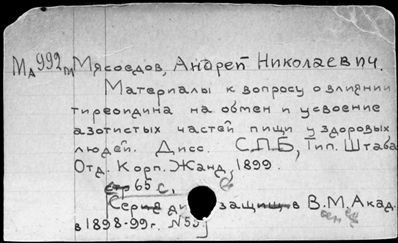 Мд992м Мясоедов, Андрей Николаевич.
Материалы к вопросу о влиянии
тиреоидина на обмен и усвоение
азотистых частей пищи у здоровых
людей. Дисс. С.П.Б, Тип. Штаба
Отд. Корп. Жанд, 1899.
65 с.
Серия защ в В.М. Акад.
в 1898-99г. N55.